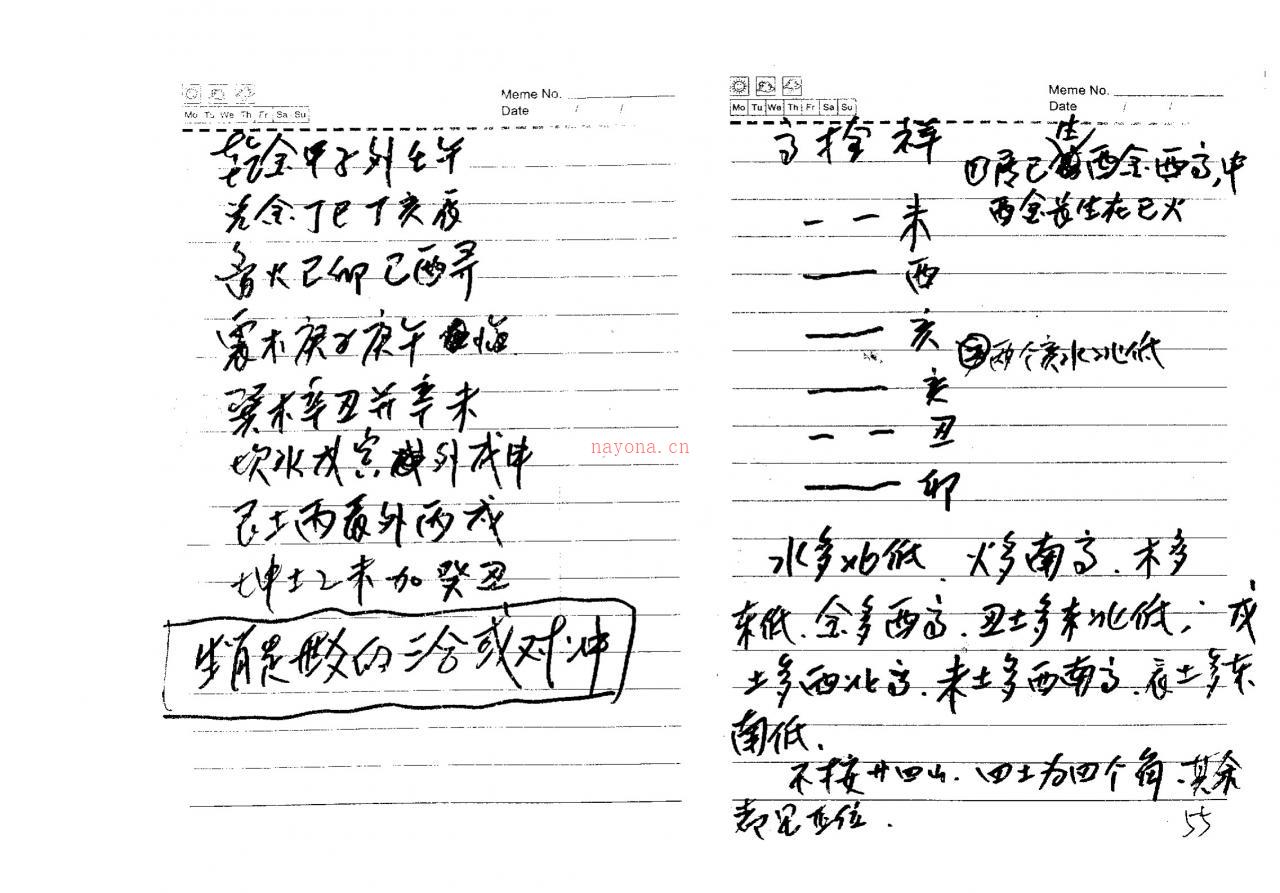 Meme No.
Date / /
Mo Tu We Th Fr Sa Su
乾金甲子外壬午
兑金丁巳丁亥
火己卯己酉寻
震木庚子庚午临
巽木辛丑并辛未
坎水戊寅外戊申
艮土丙辰外丙戌
坤土乙未加癸丑
生肖是爻的二合或对冲
nayona.cn
Meme No.
Date / /
Mo Tu We Th Fr Sa Su
高栓祥
生
①居巳酉金西高,中
酉金长生在巳火
未
酉
亥
②两个亥水北低
亥
丑
卯
水多北低、火多南高、木多
东低、金多西高、丑土多东北低;戌
土多西北高、未土多西南高、辰土多东
南低、
不按廿四山、四土为四个角、其余
都是正位.
55